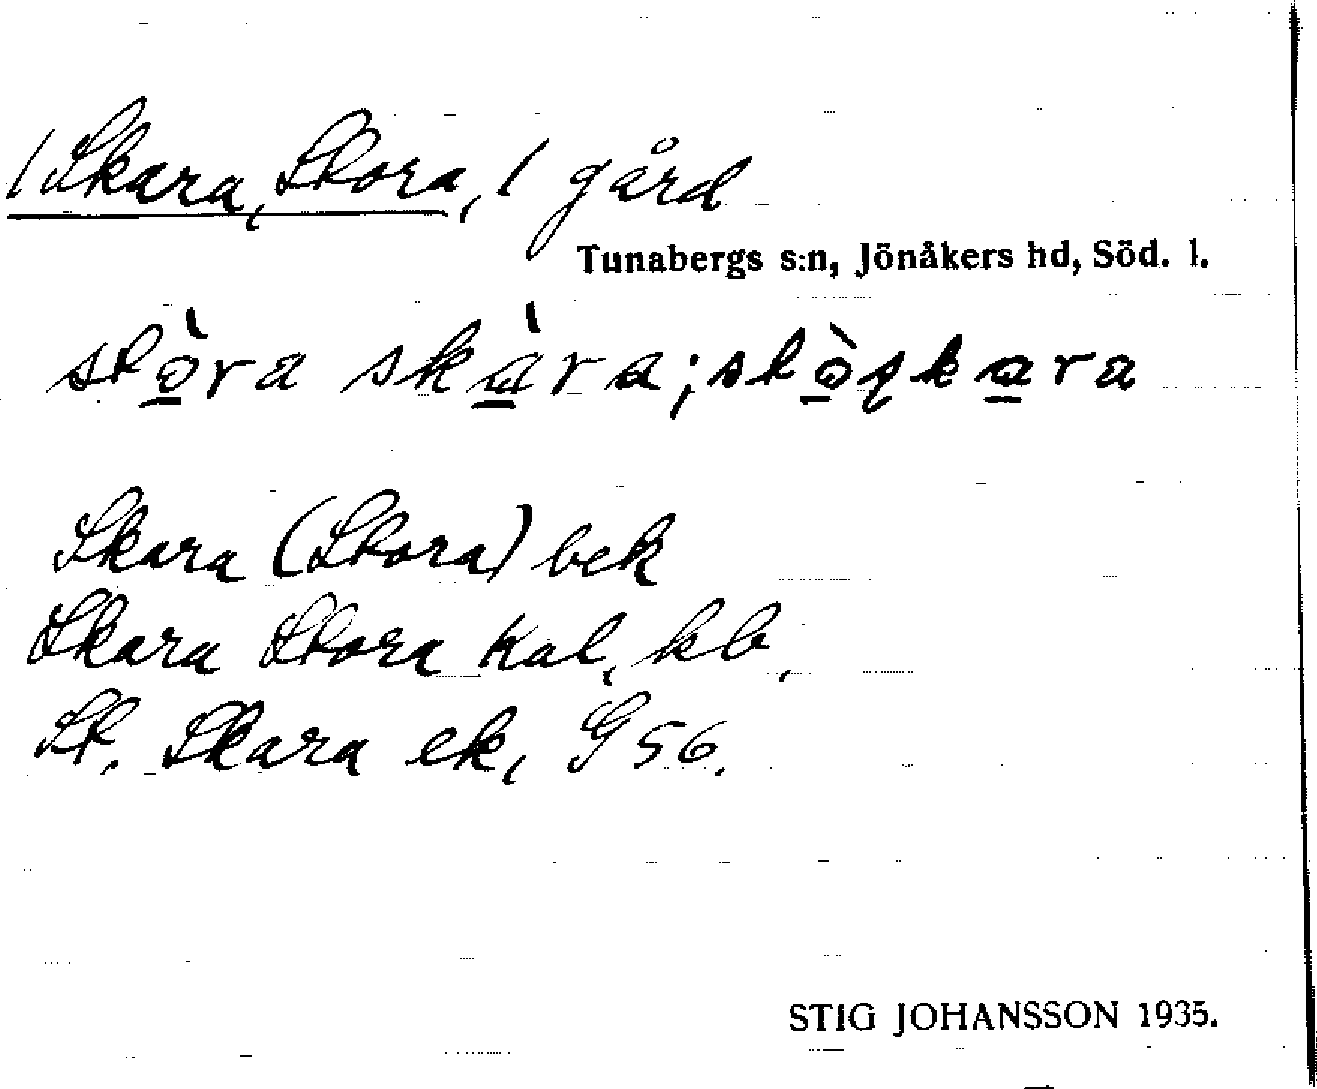 /Skara, Stora,/ gård
Tunabergs s:n, Jönåkers hd, Söd. l.
stò̲ra skà̲ra; stò̲ʂka̲ra
Skara (Stora) bek
Skara Stora Kal, kb,
St. Skara ek, G 56.
STIG JOHANSSON 1935.